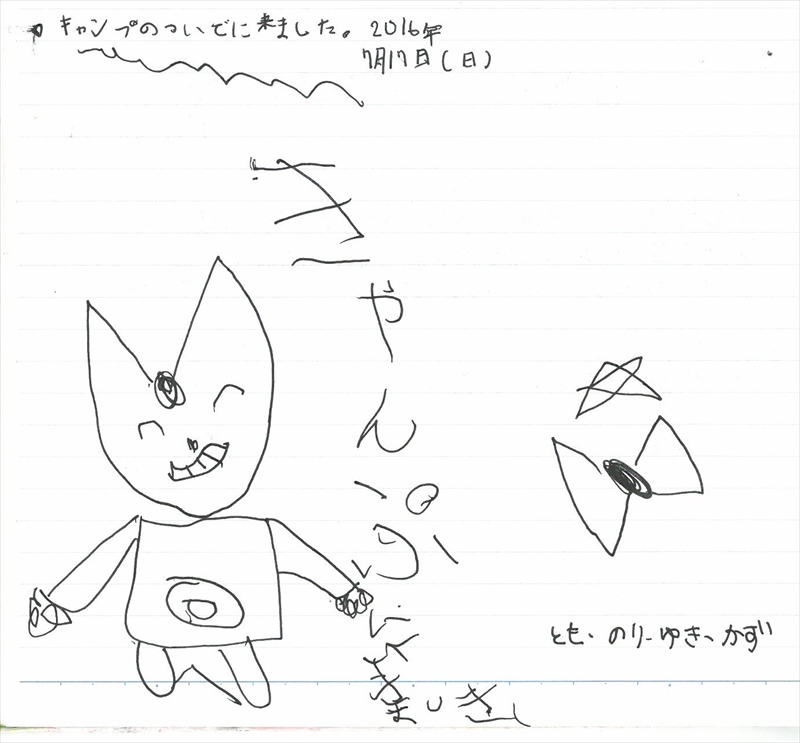 キャンプのついでに来ました。 2016年
7月17日(日)
きやんぷ
とも、のりーゆき、かず